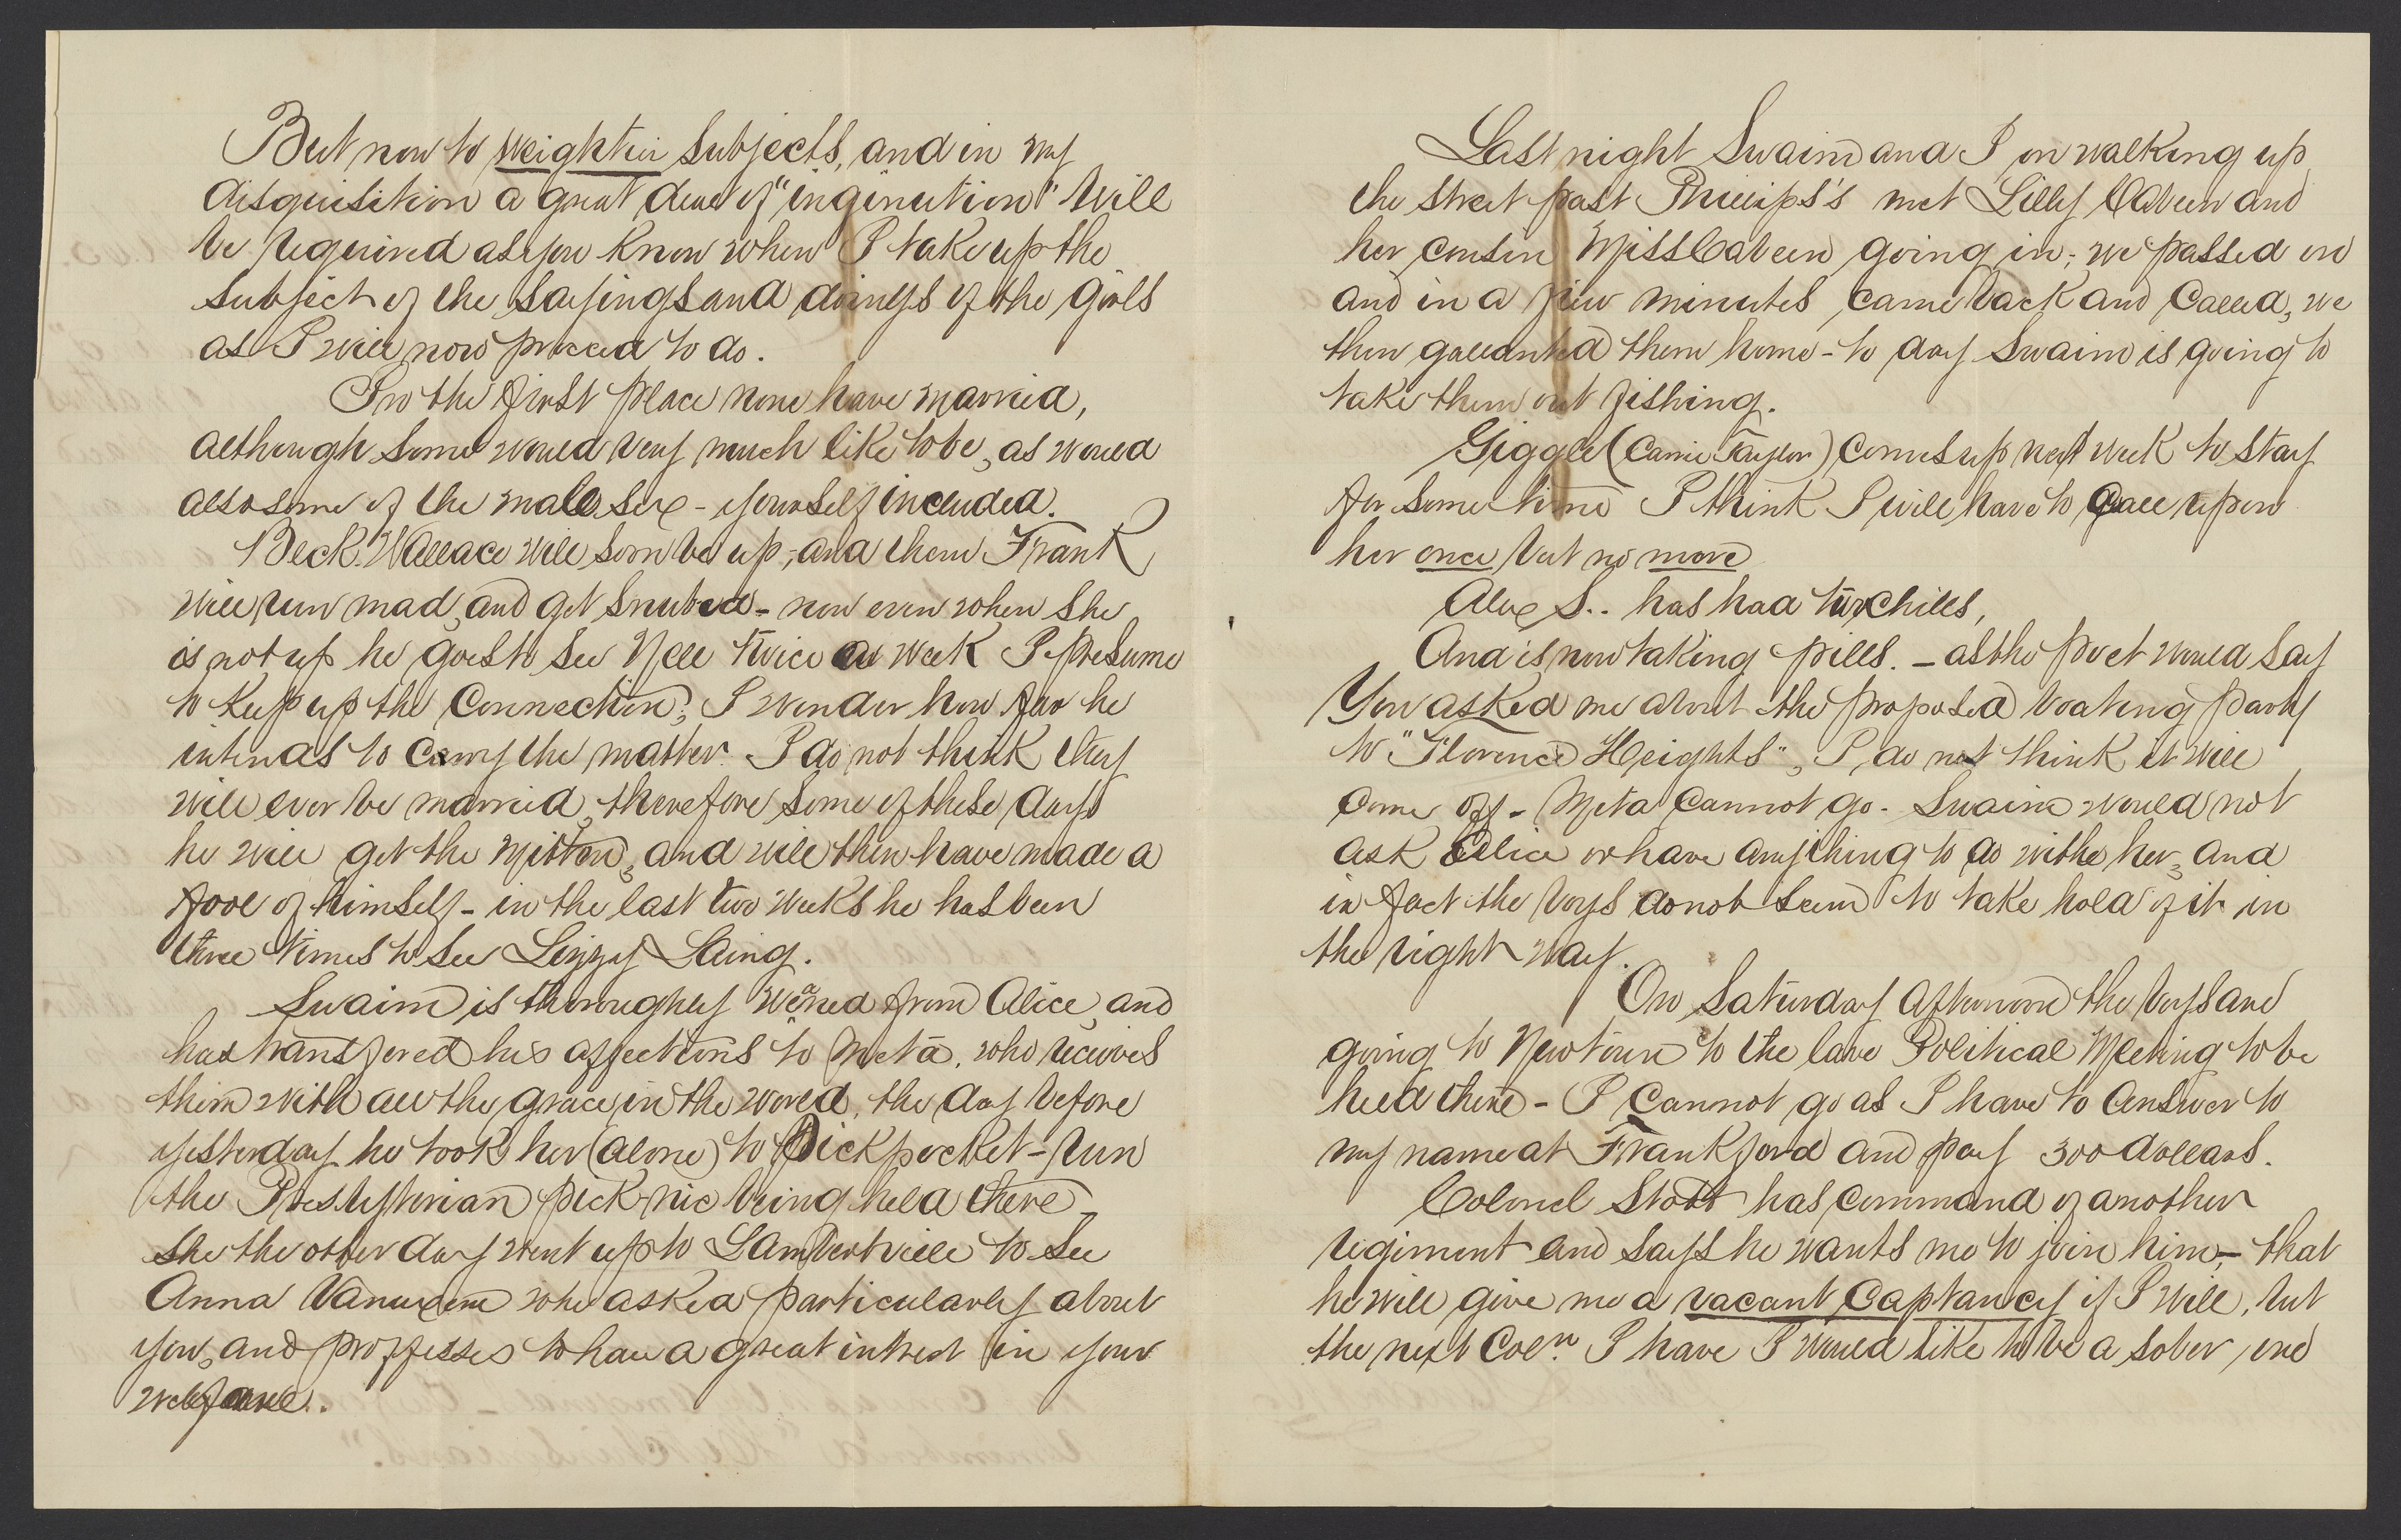 But now to weightier subjects, and in my
disquisition a great deal of "ingenution" will
be required as you know when I take up the
subject of the sayings and doings of the girls
as I will now proceed to do.
In the first place none have married,
although some would very much like to be, as would
also some of the male sex - yourself included.
Beck. Wallace will soon be up, and then Frank
will run mad, and get snubed - now even when she
is not up he goes to see Nell twice a week I presume
to keep up the Connection; I wonder how far he
intends to carry the matter. I do not think they
will ever be married, therefore some of these days
he will get the mitten, and will then have made a
fool of himself - in the last two weeks he has been
three times to see Lizzy Laing.
Swaim is thoroughly weaned from Alice, and
has transfered his affections to Meta, who receives
them with all the grace in the world, the day before
yesterday he took her (alone) to Pickpocket-run
the Presbyterian pick-nic being held there -
she the other day went up to Lambertville to see
Anna Vanuxem who asked particularly about
you, and proffesses to have a great intrest in your
welfare.
Last night Swaim and I on walking up
the street past Phillips's met Lilly Cabeen and
her cousin Miss Cabeen going in; we passed on
and in a few minutes came back and called, we
then gallanted them home - to day Swaim is going to
take them out fishing.
Giggle (Carrie Taylor) comes up next week to stay
for some time I think I will have to call upon
her once but no more
Alex S.. has had two chills,
And is now taking pills. - as the poet would say
You asked me about the proposed boating party
to "Florence Heights", I do not think it will
come off - Meta cannot go - Swaim would not
ask Alice or have anything to do withe her, and
in fact the boys do not seem to take hold of it in
the right way.
On Saturday afternoon the boys are
going to Newtown to the law Political Meeting to be
held there - I cannot go as I have to answer to
my name at Frankford and pay 300 dollars.
Colonel Stott has command of another
regiment and says he wants me to join him, - that
he will give me a vacant Captancy if I will, but
the next Coln. I have I would like to be a sober one